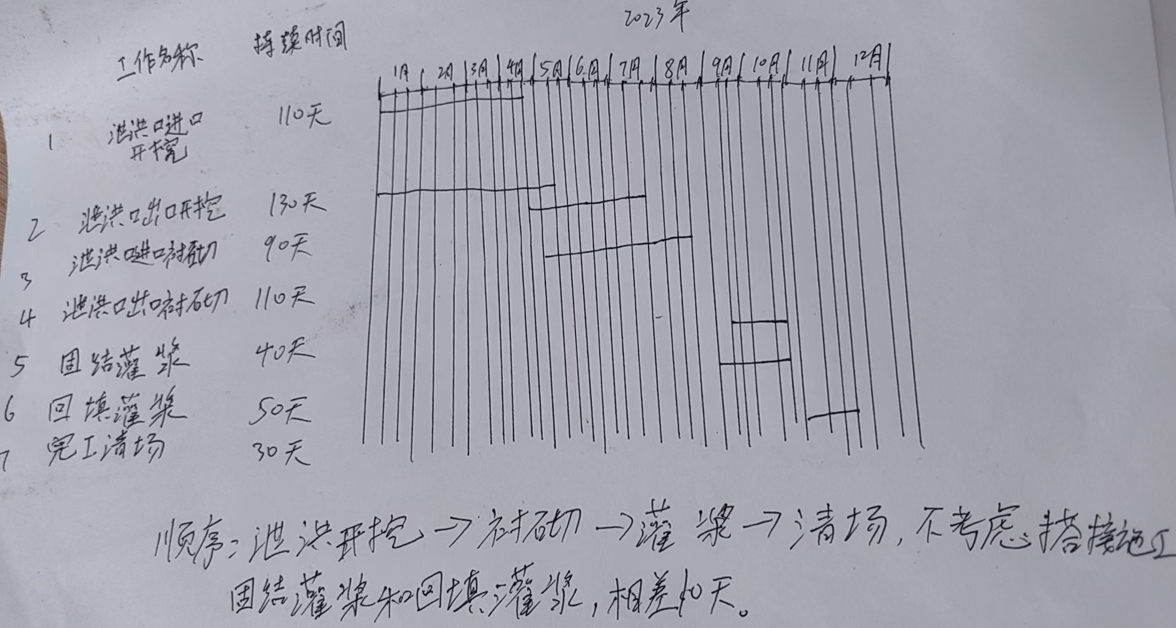 2023年
工作名称 持续时间
1月 2月 3月 4月 5月 6月 7月 8月 9月 10月 11月 12月
1 泄洪口进口开挖 110天
2 泄洪口出口开挖 130天
3 泄洪口进口衬砌 90天
4 泄洪口出口衬砌 110天
5 固结灌浆 40天
6 回填灌浆 50天
7 完工清场 30天
顺序：泄洪开挖→衬砌→灌浆→清场，不考虑搭接施工
固结灌浆和回填灌浆，相差10天。